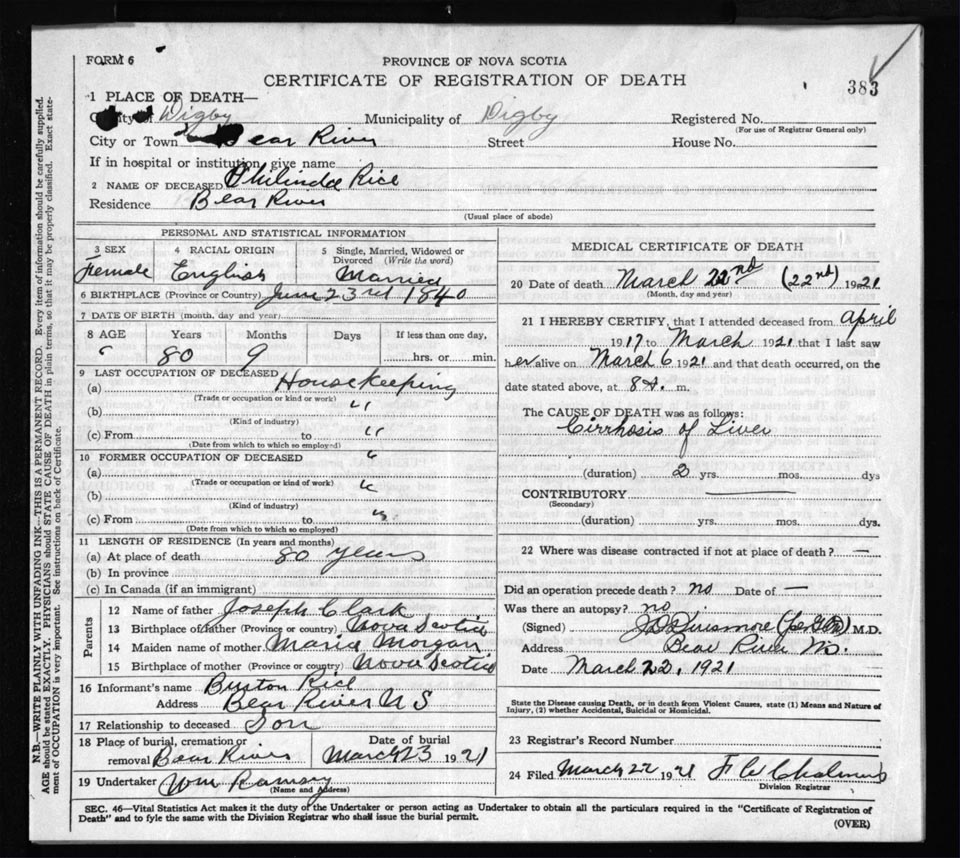 FORM 6
PROVINCE OF NOVA SCOTIA
CERTIFICATE OF REGISTRATION OF DEATH
383
1 PLACE OF DEATH—
County of Digby Municipality of Digby Registered No.
(For use of Registrar General only)
City or Town Bear River Street House No.
If in hospital or institution, give name
2 NAME OF DECEASED Philinda Rice
Residence Bear River
(Usual place of abode)
PERSONAL AND STATISTICAL INFORMATION
3 SEX 4 RACIAL ORIGIN 5 Single, Married, Widowed or Divorced (Write the word)
Female English Married
6 BIRTHPLACE (Province or Country) June 23rd 1840
7 DATE OF BIRTH (month, day and year)
8 AGE Years Months Days If less than one day,
80 9 hrs. or min.
9 LAST OCCUPATION OF DECEASED
(a) Housekeeping
(Trade or occupation or kind or work)
(b) "
(Kind of industry)
(c) From to "
(Date from which to which so employed)
10 FORMER OCCUPATION OF DECEASED "
(a)
(Trade or occupation or kind of work) "
(b)
(Kind of industry)
(c) From to "
(Date from which to which so employed)
11 LENGTH OF RESIDENCE (In years and months)
(a) At place of death 80 years
(b) In province
(c) In Canada (if an immigrant)
Parents
12 Name of father Joseph Clark
13 Birthplace of father (Province or country) Nova Scotia
14 Maiden name of mother Maria Morgan
15 Birthplace of mother (Province or country) Nova Scotia
16 Informant's name Burton Rice
Address Bear River N S
17 Relationship to deceased Son
18 Place of burial, cremation or removal Bear River Date of burial March 23 1921
19 Undertaker Wm Ramsey
(Name and Address)
MEDICAL CERTIFICATE OF DEATH
20 Date of death March 22nd (22nd) 1921
(Month, day and year)
21 I HEREBY CERTIFY, that I attended deceased from April
1917 to March 1921 that I last saw
her alive on March 6 1921 and that death occurred, on the
date stated above, at 8 a. m.
The CAUSE OF DEATH was as follows:
Cirrhosis of Liver
(duration) 2 yrs. mos. dys
CONTRIBUTORY —
(Secondary)
(duration) yrs. mos. dys.
22 Where was disease contracted if not at place of death? —
Did an operation precede death? no Date of —
Was there an autopsy? no
(Signed) M.D.
Address Bear River
Date March 22, 1921
State the Disease causing Death, or in death from Violent Causes, state (1) Means and Nature of
Injury, (2) whether Accidental, Suicidal or Homicidal.
23 Registrar's Record Number
24 Filed March 22 1921 F W Chalmers
Division Registrar
SEC. 46—Vital Statistics Act makes it the duty of the Undertaker or person acting as Undertaker to obtain all the particulars required in the "Certificate of Registration of
Death" and to fyle the same with the Division Registrar who shall issue the burial permit.
(OVER)
N.B.—WRITE PLAINLY WITH UNFADING INK—THIS IS A PERMANENT RECORD. Every item of information should be carefully supplied.
AGE should be stated EXACTLY. PHYSICIANS should STATE CAUSE OF DEATH in plain terms, so that it may be properly classified. Exact state-
ment of OCCUPATION is very important. See instructions on back of Certificate.